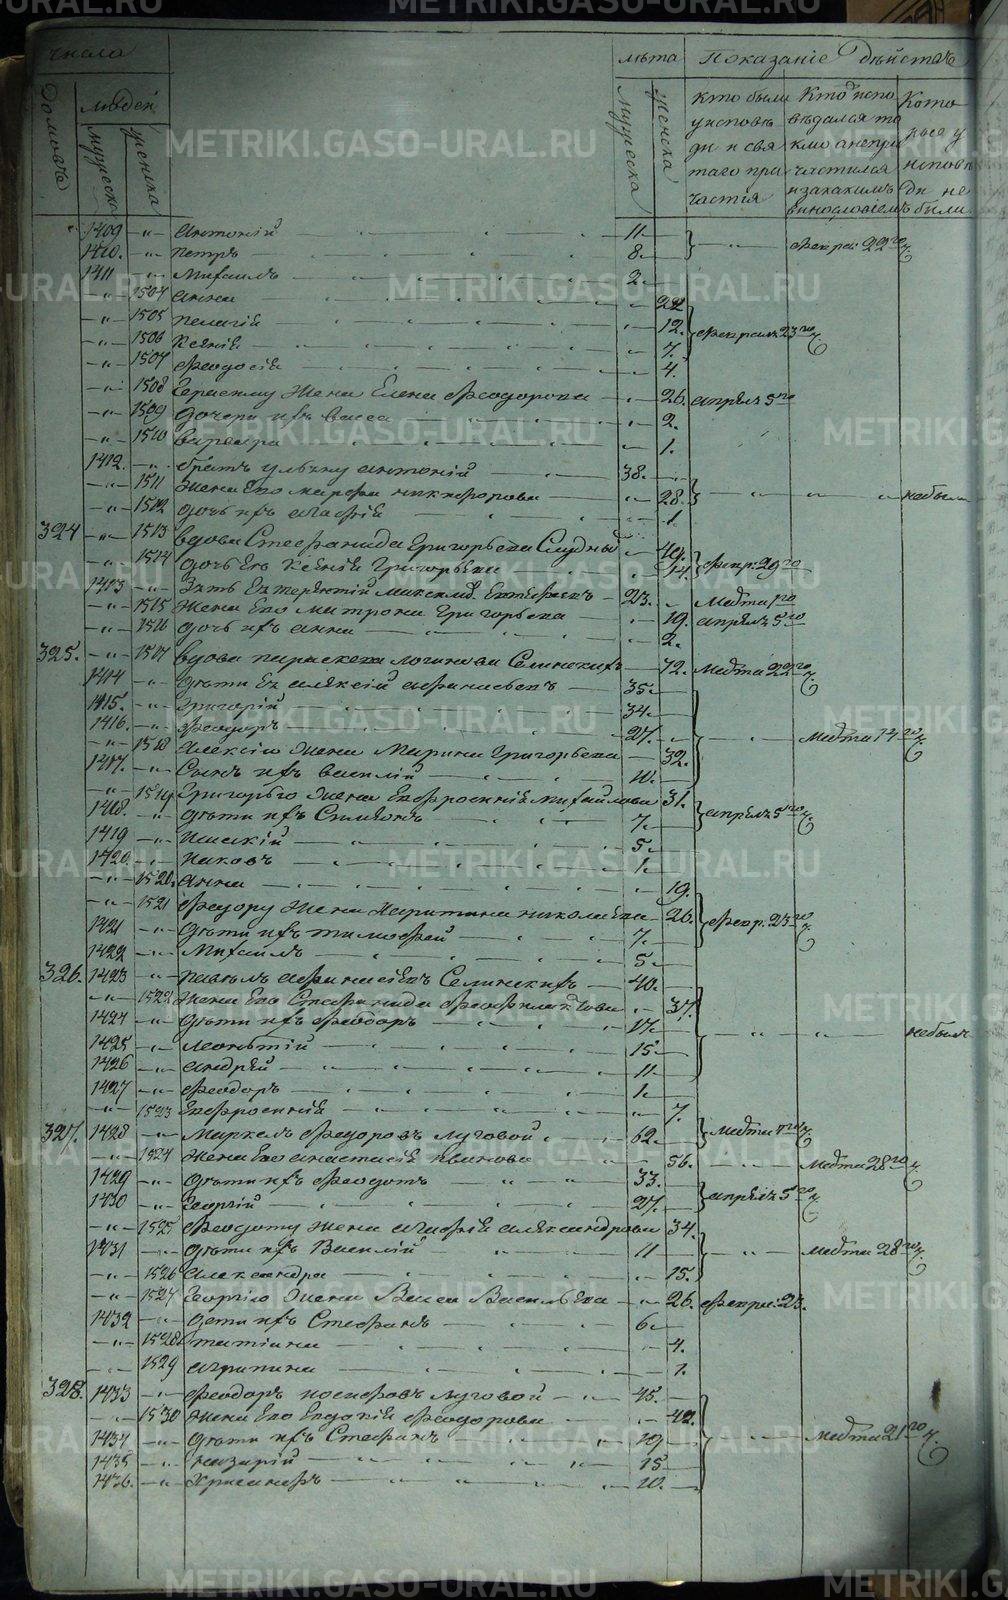 METRIKI.GASO-URAL.RU
числа
лѣта Показанiе дѣйства
Домовъ людей мужеска женска
мужеска женска
кто были у исповѣди и святаго причастiя
Кто исповѣдался токмо а не причастился и за какимъ винословiемъ
Кото
исповѣди не были
1409 —„— Антонiй 11
1410. —„— Петръ 8. Февра: 22го
1411 —„— Михаилъ 2.
—„— 1504 Анна
—„— 1505 Пелагiя 12. Февраля 23го
—„— 1506 Ксенiя 7.
—„— 1507 Феодосiя 4.
—„— 1508 жена Елена Феодорова 26. Апрѣля 5го
—„— 1509 дочери ихъ Васса 2.
—„— 1510 Варвара 1.
1412. —„— братъ Антонiй 38.
—„— 1511 жена Его Марфа Никифорова 28. небыли
—„— 1512 дочь ихъ 1.
324 —„— 1513 вдова Стефанида Григорьева
—„— 1514 дочь Ея Ксенiя Григорьева 14. Февр. 29го
1413 —„— Зять 23. Марта
—„— 1515 жена Его Матрона Григорьева 19. Апрѣля 5го
—„— 1516 дочь ихъ Анна 2.
325. —„— 1517 вдова Параскева Логинова Селинскихъ 72. Марта 22го
1414 —„— дѣти Ея Алексiй Афанасьевъ 35.
1415. —„— Григорiй 34.
1416. —„— Феодоръ 27.
—„— 1518 Алексiю жена Марина Григорьева 32. Марта 14го
1417. —„— Сынъ ихъ Василiй 10.
—„— 1519 Григорью жена Евфросинiя Михайлова 31.
1418. —„— дѣти ихъ Симеонъ 7. Апрѣля 5го
1419 —„— 5.
1420. —„— Иаковъ 1.
—„— 1520. Анна 19.
—„— 1521 Феодору жена Харитина Николаева 26. Февр. 23го
1421 —„— дѣти ихъ Тимофей 7.
1422 —„— Михаилъ 5
326. 1423 —„— Павелъ Афанасiевъ Селинскихъ 40.
—„— 1522 жена Его Стефанида 37.
1424 —„— дѣти ихъ Феодоръ 17. небыли
1425 —„— Леонтiй 15
1426 —„— Андрей 11
1427 —„— Феодоръ 1.
—„— 1523 Евфросинiя 7.
327. 1428 —„— Маркелъ Федоровъ Луговой 62. Марта
—„— 1524 жена Его Анастасiя Иванова 56. Марта 28го
1429 —„— дѣти ихъ Феодотъ 33.
1430 —„— Георгiй 27. Апрѣля 5го
—„— 1525 Феодоту жена Агафiя Александрова 34.
1431 —„— дѣти ихъ Василiй 11 Марта 28го
—„— 1526 Александра 15.
—„— 1527 Георгiю жена Васса Васильева 26. Февра: 23.
1432 —„— дети ихъ Стефанъ 6.
—„— 1528 Татiана 4.
—„— 1529 Агрипина 1.
328. 1433 —„— Феодоръ Иосифовъ Луговой 45.
—„— 1530 жена Его Евдокiя Феодорова 42.
1434 —„— дѣти ихъ Стефанъ 19 Марта 21го
1435 —„— Назарiй 15
1436. —„— 10.